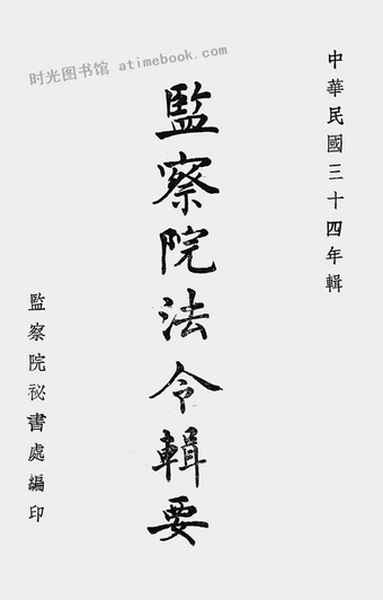 时光图书馆 atimebook.com
中華民國三十四年輯
監察院法令輯要
監察院祕書處編印